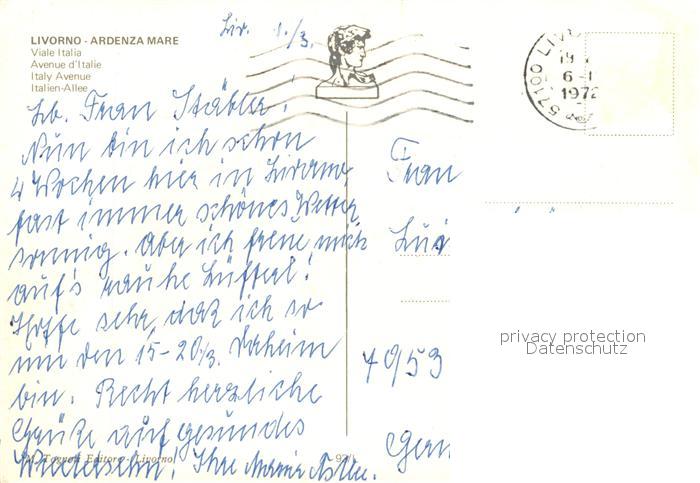 LIVORNO - ARDENZA MARE
Viale Italia
Avenue d'Italie
Italy Avenue
Italien-Allee
Liv. 1./3.
57100 LIV
6-
1972
Lb. Frau Stäbler!
Nun bin ich schon
4 Wochen hier in Livorno
fast immer schönes Wetter
sonnig. Aber ich freue mich
auf's rauhe Lüfterl!
Hoffe sehr, daß ich so
um den 15-20/3. Daheim
bin. Recht herzliche
Grüße auf gesundes
Wiedersehn! Ihre Maria
Frau
7953
Ger
Tognoli Editore - Livorno
privacy protection
Datenschutz